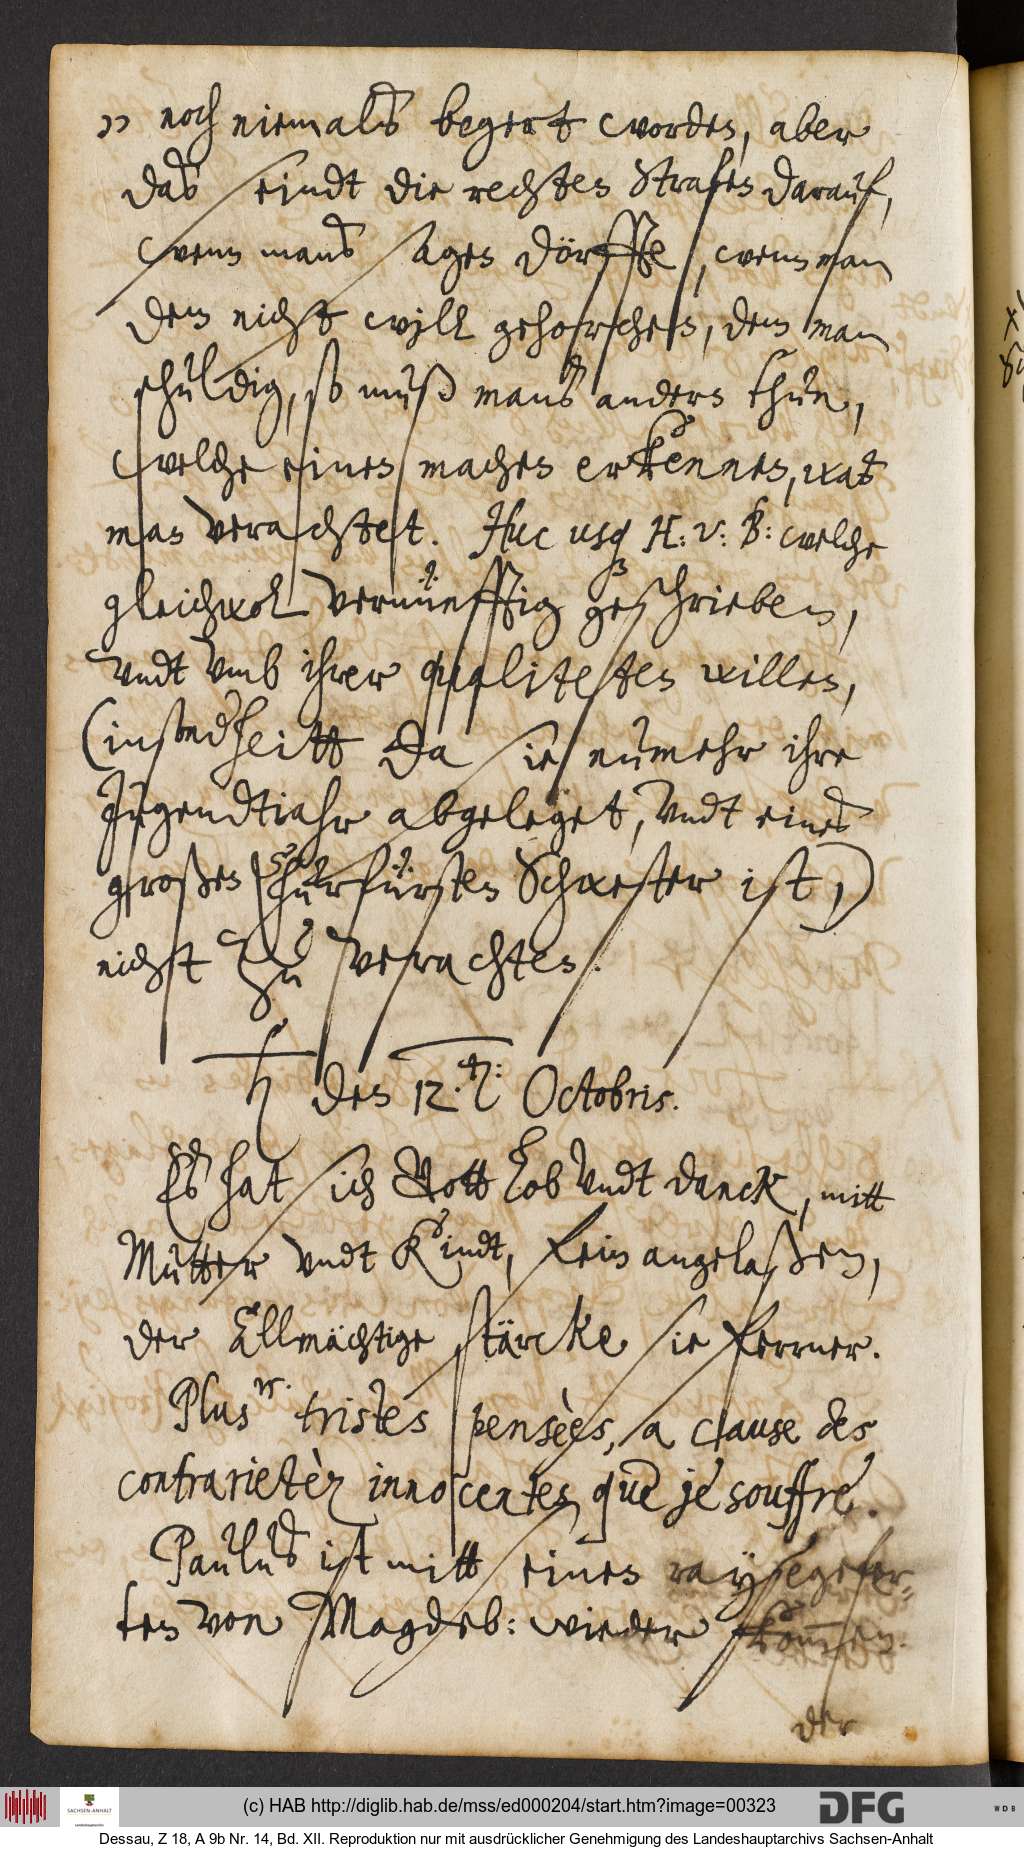 " noch niemalß begert worden, aber
das seindt die rechten Strafen darauf,
wenn mans sagen dörffte, wenn man
dem nicht will gehorchen, dem man
schuldig, so muß mans anders thun,
welche einen machen erkennen, wat
man verachtet. Huc usq H: v: B: welche
gleichwol vernünfftig geschrieben,
vndt vmb ihrer qualiteten willen,
(instedheitt da sie numehr ihre
Jugendtiahr abgeleget, vndt eines
großen Churfürsten Schwester ist,)
nicht zu verachten.
♄ den 12. ten: Octobris.
Es hat sich Gott lob vndt danck, mitt
Mutter vndt Kindt, fein angelaßen,
der Allmächtige stärcke sie ferrner.
Plusrs. tristes pensèes, a clause des
contrarietèz innocentes que je souffre.
Paulus ist mitt einen raysegefer-
ten von Magdeb: wieder kommen.
der
(c) HAB http://diglib.hab.de/mss/ed000204/start.htm?image=00323
DFG
WDB
SACHSEN-ANHALT
Dessau, Z 18, A 9b Nr. 14, Bd. XII. Reproduktion nur mit ausdrücklicher Genehmigung des Landeshauptarchivs Sachsen-Anhalt